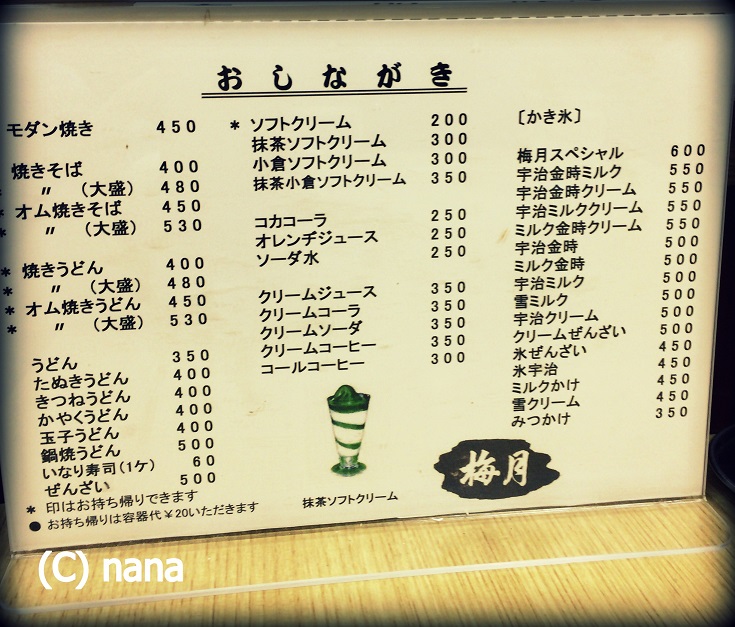 おしながき
モダン焼き 450
焼きそば 400
〃 (大盛) 480
* オム焼きそば 450
* 〃 (大盛) 530
* 焼きうどん 400
* 〃 (大盛) 480
* オム焼うどん 450
* 〃 (大盛) 530
うどん 350
たぬきうどん 400
きつねうどん 400
かやくうどん 400
玉子うどん 400
鍋焼うどん 500
いなり寿司(1ケ) 60
ぜんざい 500
* 印はお持ち帰りできます
● お持ち帰りは容器代¥20いただきます
* ソフトクリーム 200
抹茶ソフトクリーム 300
小倉ソフトクリーム 300
抹茶小倉ソフトクリーム 350
コカコーラ 250
オレンヂジュース 250
ソーダ水 250
クリームジュース 350
クリームコーラ 350
クリームソーダ 350
クリームコーヒー 350
コールコーヒー 300
抹茶ソフトクリーム
〔かき氷〕
梅月スペシャル 600
宇治金時ミルク 550
宇治金時クリーム 550
宇治ミルククリーム 550
ミルク金時クリーム 550
宇治金時 500
ミルク金時 500
宇治ミルク 500
雪ミルク 500
宇治クリーム 500
クリームぜんざい 500
氷ぜんざい 450
氷宇治 450
ミルクかけ 450
雪クリーム 450
みつかけ 350
梅月
(C) nana